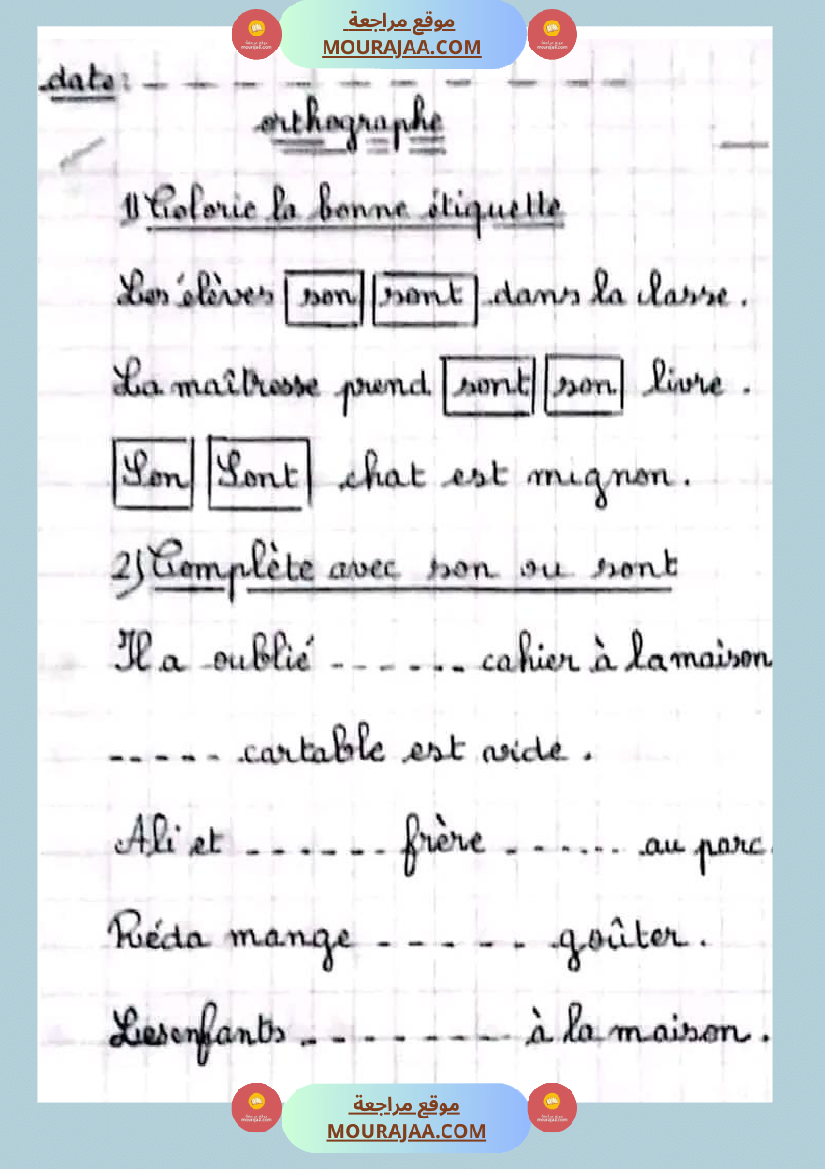 موقع مراجعة
MOURAJAA.COM
date: - - - - - - - - - -
orthographe
1) Colorie la bonne étiquette
Les élèves son sont dans la classe.
La maîtresse prend sont son livre.
Son Sont chat est mignon.
2) Complète avec son ou sont
Il a oublié - - - - - - cahier à la maison
- - - - - cartable est vide.
Ali et - - - - - - frère - - - - - - au parc.
Réda mange - - - - - goûter.
Les enfants - - - - - - - - à la maison.
موقع مراجعة
MOURAJAA.COM